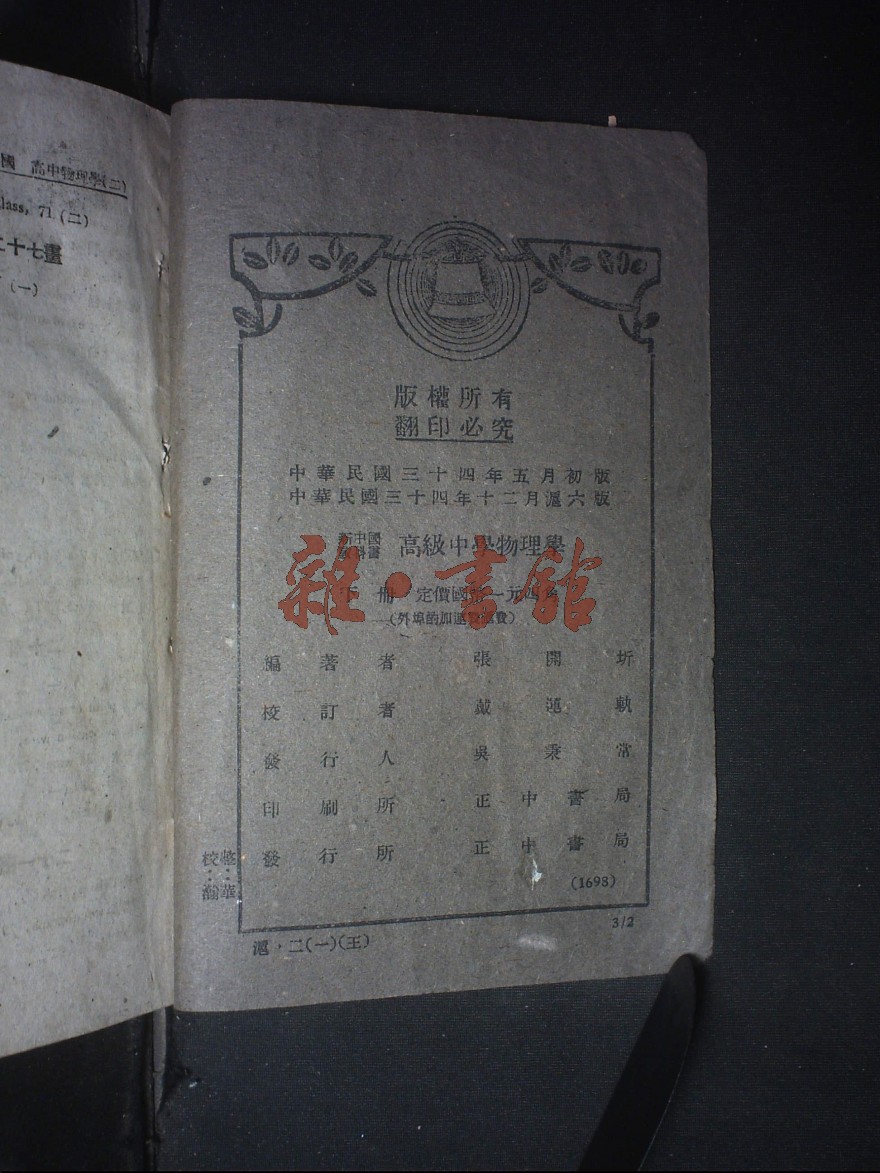 國 高中物理學(二)
lass, 71 (二)
二十七畫
(一)
版權所有
翻印必究
中華民國三十四年五月初版
中華民國三十四年十二月滬六版
新中國
教科書 高級中學物理學
下冊 定價國幣一元四角
(外埠酌加運費匯費)
編著者 張開圻
校訂者 戴運軌
發行人 吳秉常
印刷所 正中書局
發行所 正中書局
(1698)
校:瀚
整:華
滬·二(一)(王)
3/2
雜·書館